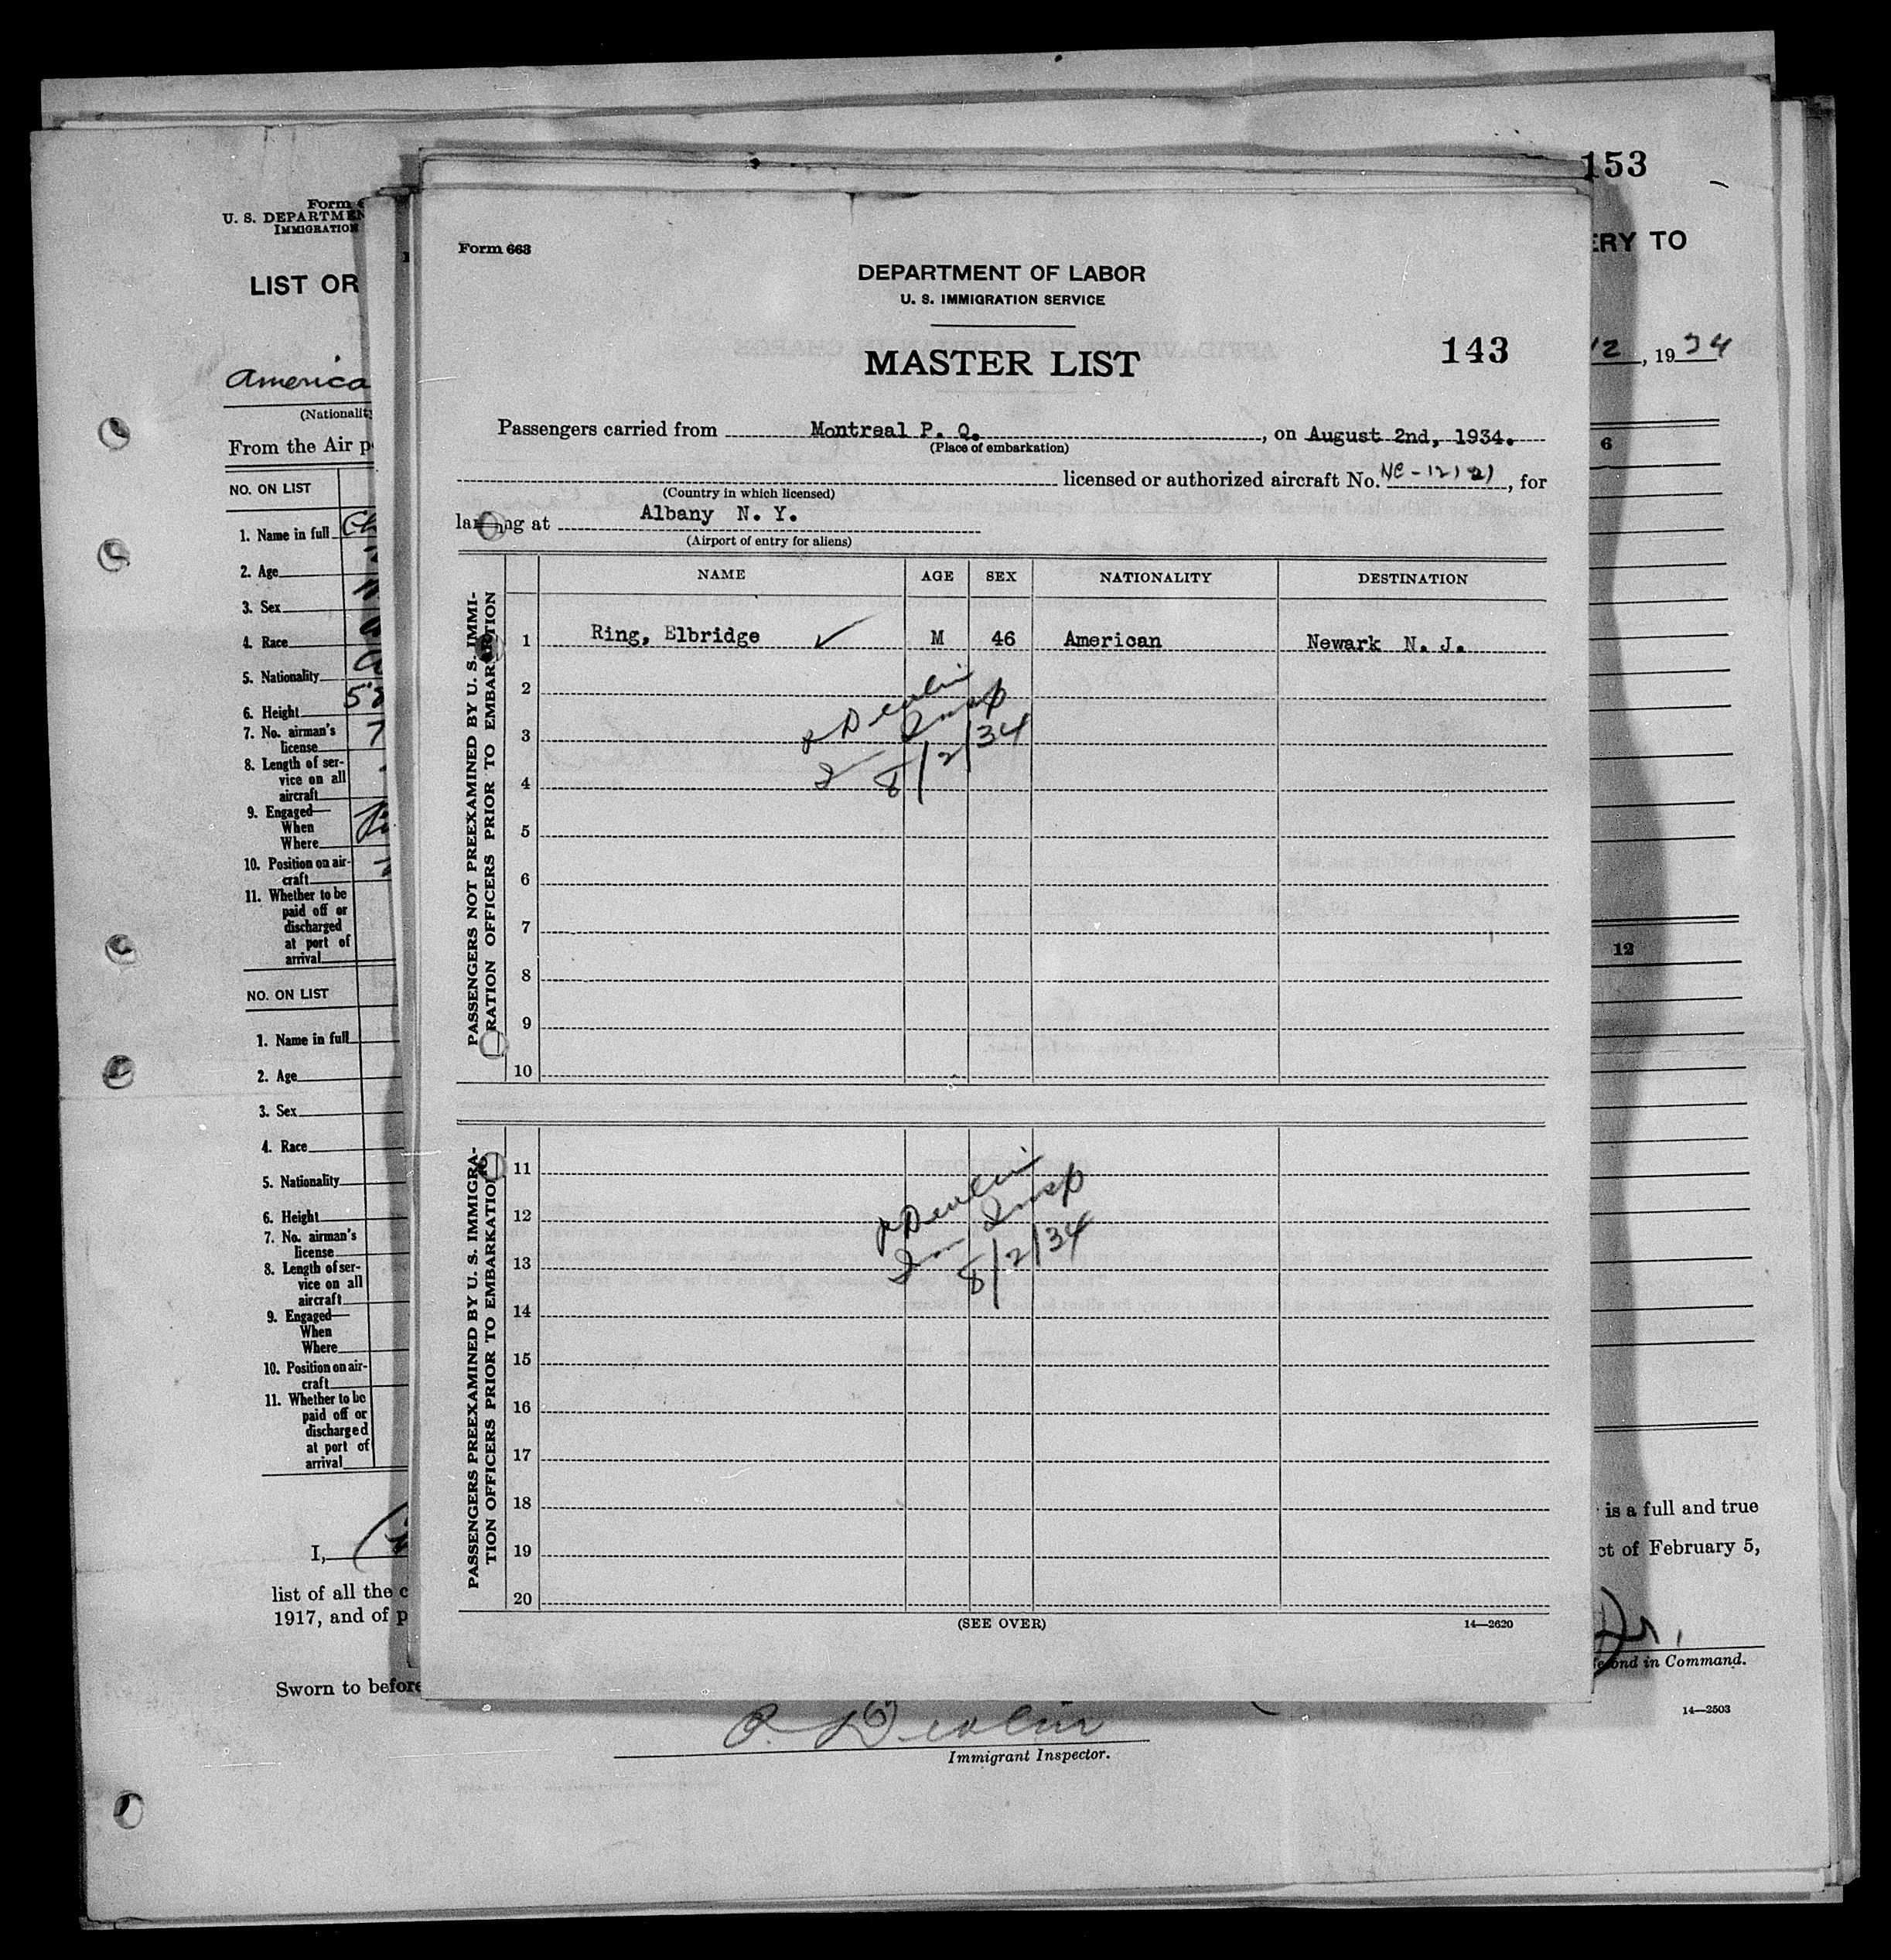 153
Form
U. S. DEPARTMEN
IMMIGRATION
LIST OR
ERY TO
America
(Nationalit
12, 1934
From the Air p
6
NO. ON LIST
1. Name in full
2. Age
3. Sex
4. Race
5. Nationality
6. Height
7. No. airman's
license
8. Length of ser-
vice on all
aircraft
9. Engaged—
When
Where
10. Position on air-
craft
11. Whether to be
paid off or
discharged
at port of
arrival
12
NO. ON LIST
1. Name in full
2. Age
3. Sex
4. Race
5. Nationality
6. Height
7. No. airman's
license
8. Length of ser-
vice on all
aircraft
9. Engaged—
When
Where
10. Position on air-
craft
11. Whether to be
paid off or
discharged
at port of
arrival
I,
is a full and true
list of all the c
ct of February 5,
1917, and of p
Jr.
Second in Command.
Sworn to before
14—2503
Form 663
DEPARTMENT OF LABOR
U. S. IMMIGRATION SERVICE
MASTER LIST
143
Passengers carried from Montreal P. Q., on August 2nd, 1934.
(Place of embarkation)
licensed or authorized aircraft No. NC-12121, for
(Country in which licensed)
landing at Albany N. Y.
(Airport of entry for aliens)
NAME AGE SEX NATIONALITY DESTINATION
PASSENGERS NOT PREEXAMINED BY U. S. IMMI-
GRATION OFFICERS PRIOR TO EMBARKATION
1 Ring, Elbridge ✓ M 46 American Newark N. J.
2
3
4
Devlin
Insp
8/2/34
5
6
7
8
9
10
PASSENGERS PREEXAMINED BY U. S. IMMIGRA-
TION OFFICERS PRIOR TO EMBARKATION
11
12
13
14
Devlin
Insp
8/2/34
15
16
17
18
19
20
(SEE OVER)
14—2620
P. Devlin
Immigrant Inspector.